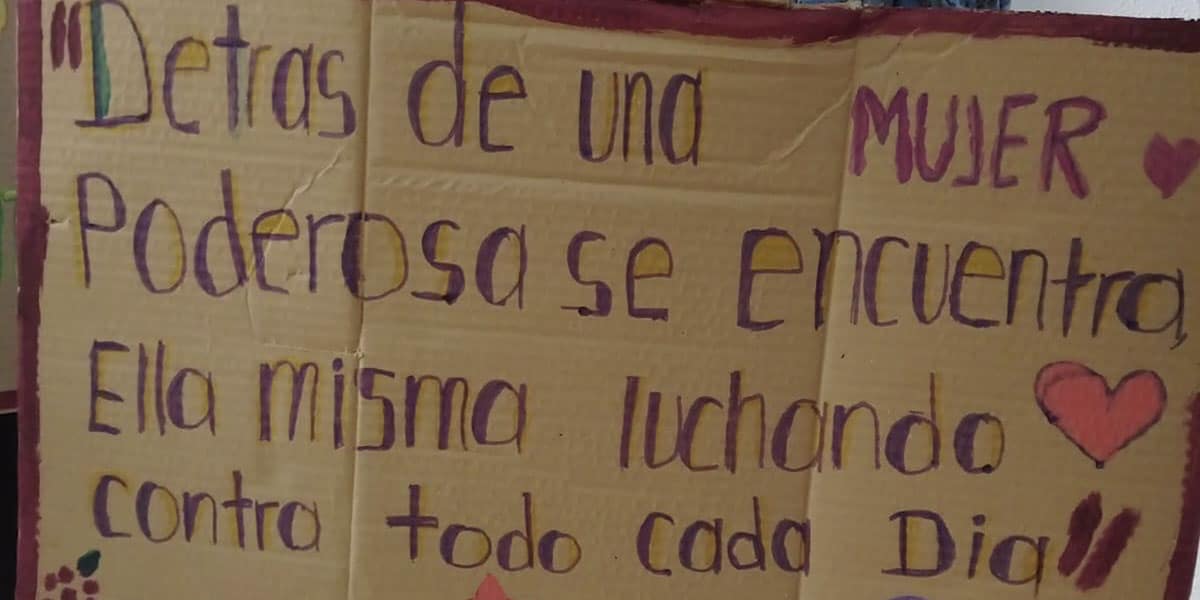 "Detras de una MUJER
Poderosa se encuentra,
Ella misma luchando
contra todo cada Dia"